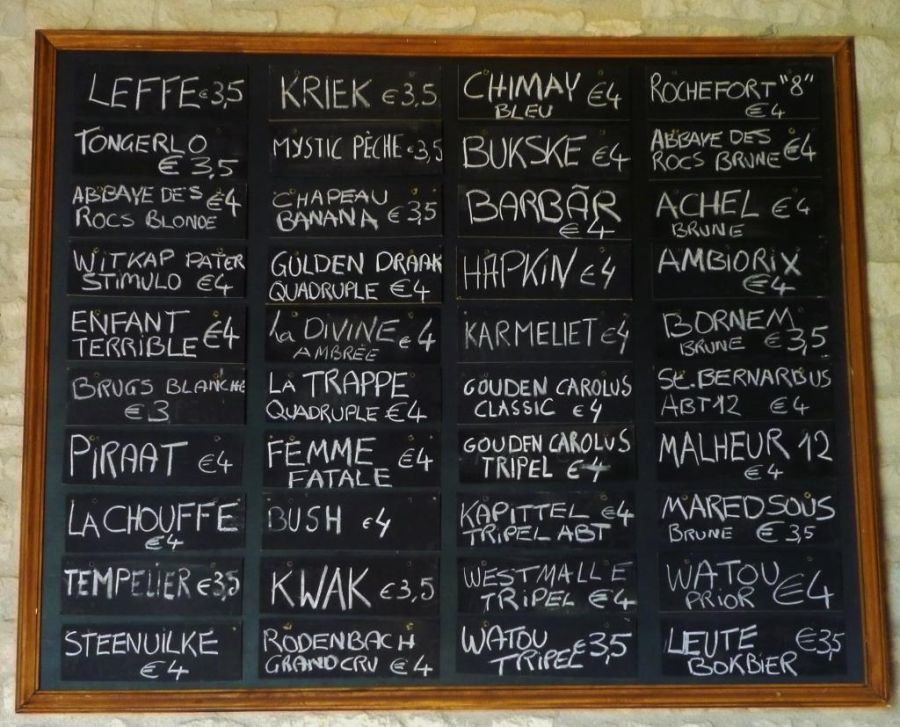 LEFFE €3,5
TONGERLO
€3,5
ABBAYE DES €4
ROCS BLONDE
WITKAP PATER
STIMULO €4
ENFANT €4
TERRIBLE
BRUGS BLANCHE
€3
PIRAAT €4
LA CHOUFFE
€4
TEMPELIER €3,5
STEENUILKE
€4
KRIEK €3,5
MYSTIC PÈCHE €3,5
CHAPEAU
BANANA €3,5
GULDEN DRAAK
QUADRUPLE €4
la DIVINE €4
AMBRÉE
LA TRAPPE
QUADRUPLE €4
FEMME €4
FATALE
BUSH €4
KWAK €3,5
RODENBACH
GRAND CRU €4
CHIMAY €4
BLEU
BUKSKE €4
BARBÃR
€4
HAPKIN €4
KARMELIET €4
GOUDEN CAROLUS
CLASSIC €4
GOUDEN CAROLUS
TRIPEL €4
KAPITTEL €4
TRIPEL ABT
WESTMALLE
TRIPEL €4
WATOU €3,5
TRIPEL
ROCHEFORT "8"
€4
ABBAYE DES €4
ROCS BRUNE
ACHEL €4
BRUNE
AMBIORIX
€4
BORNEM
BRUNE €3,5
St. BERNARDUS
ABT 12 €4
MALHEUR 12
€4
MAREDSOUS
BRUNE €3,5
WATOU €4
PRIOR
LEUTE €3,5
BOKBIER